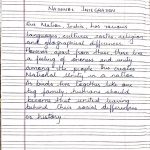 NATIONAL INTEGRATION
Our Nation India has various
languages, cultures, castes, religion
and geographical differences.
However apart from these, there lies
a feeling of oneness and unity
among the people. This creates
National Unity in a nation
As birds live together like one
big family, humans should
become that united leaving
behind their social differences
as history.